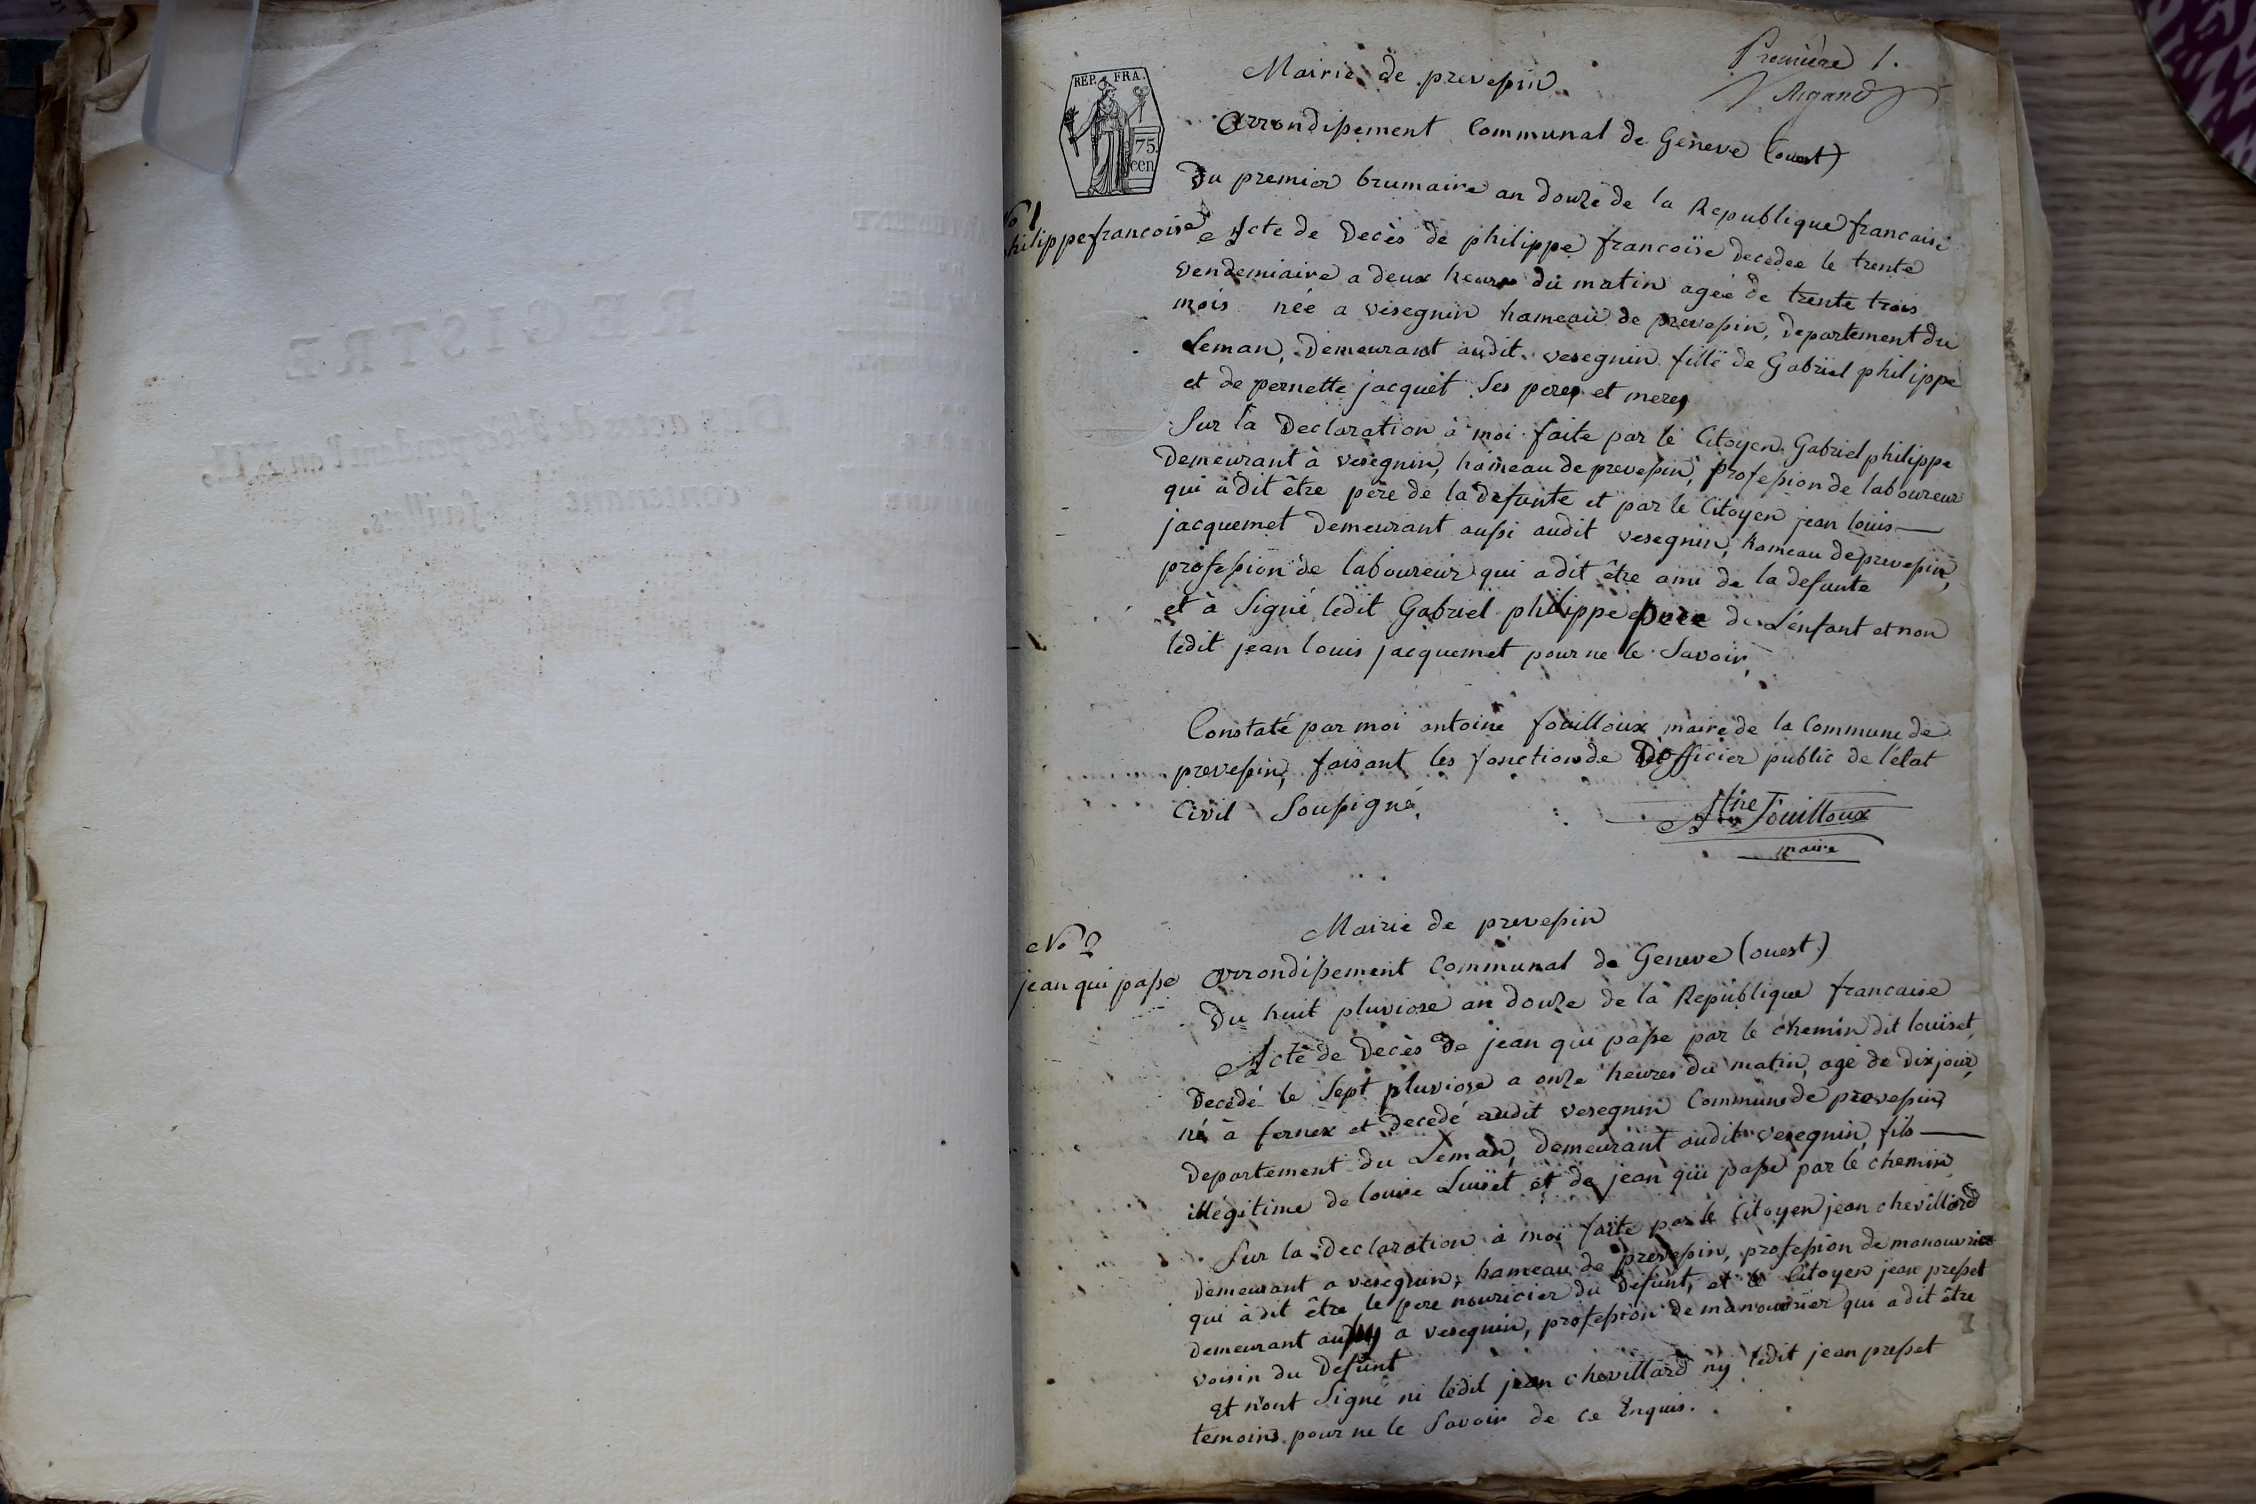 Premiere 1.
Mairie de prevessin
REP. FRA.
75.
cen
arrondissement Communal de Geneve (ouest)
Du premier brumaire an douze de la Republique francaise
No 1
philippe francoise
Acte de Decès de philippe francoise decedée le trente
vendemiaire a deux heures du matin agée de trente trois
mois née a vesegnin hameau de prevessin, departement du
Leman, Demeurant audit vesegnin fille de Gabriel philippe
et de pernette jacquet ses peres et meres
Sur la Declaration à moi faite par le Citoyen Gabriel philippe
Demeurant à vesegnin, hameau de prevessin, profession de laboureur
qui à dit être pere de la defunte et par le Citoyen jean louis
jacquemet Demeurant aussi audit vesegnin, hameau de prevessin,
profession de laboureur qui a dit être ami de la defunte
et à Signé ledit Gabriel philippe pere de L'enfant et non
ledit jean louis jacquemet pour ne le Savoir,
Constaté par moi antoine fouilloux maire de la Commune de
prevessin, faisant les fonctions de D'officier public de l'état
Civil Soussigné.
Atne Fouilloux
maire
Mairie de prevessin
No 2
jean qui passe
arrondissement Communal de Geneve (ouest)
Du huit pluviose an douze de la Republique francaise
Acte de Decès de jean qui passe par le chemin dit louiset,
Decedé le Sept pluviose a onze heures du matin, agé de Dix jour,
né à fernex et Decedé audit vesegnin Commune de prevessin,
departement du Leman, demeurant audit vesegnin, fils
illégitime de louise Luiset et de jean qui passe par le chemin
Sur la declaration à moi faite par le Citoyen jean chevillard
demeurant a vesegnin, hameau de prevessin, profession de manouvrier
qui à dit être le pere nouricier du defunt, et le Citoyen jean presset
demeurant aussy à vesegnin, profession de manouvrier qui a dit être
voisin du Defunt
et n'ont Signé ni ledit jean chevillard ny ledit jean presset
temoins pour ne le Savoir de ce Enquis.
REGISTRE